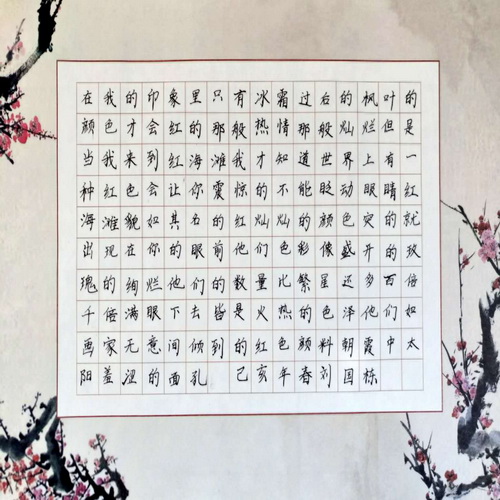 在我的印象里只有冰霜过后的枫叶的
颜色才会红的那般热情那般灿烂但是
当我来到红海滩我才知道世界上有一
种红色会让你震惊的不能眨动眼睛红
海滩貌如其名的红灿灿的颜色突的就
出现在你的眼前他们色彩像盛开的玫
瑰的绚烂他们的数量比繁星还多百倍
千倍满眼下去皆是火热的色泽他们如
画家无意间倾到的红色颜料朝霞中太
阳羞涩的面孔 己亥年春刘国栋